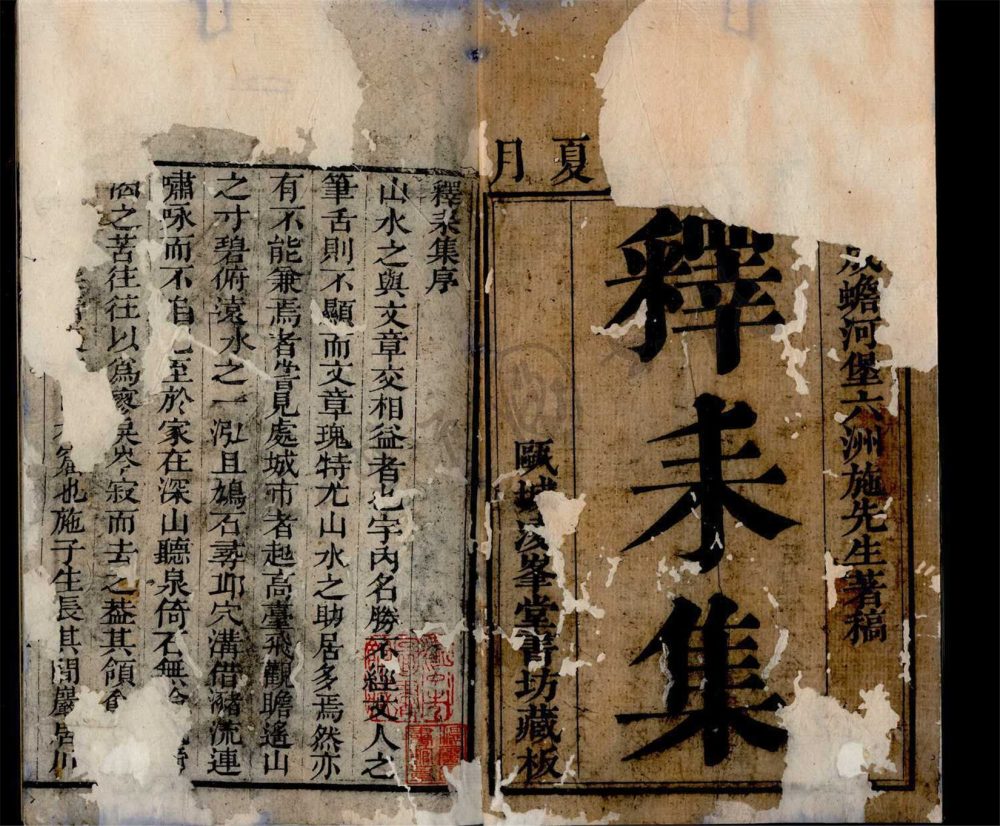 夏月
蟾河堡六洲施先生著稿
釋耒集
甌城峯堂書坊藏板
釋耒集序
山水之與文章交相益者也宇內名勝不經文人之
筆舌則不顯而文章瑰特尤山水之助居多焉然亦
有不能兼焉者嘗見處城市者起高臺飛觀瞻遙山
之寸碧俯遠水之一泓且鳩石尋邱穴溝借瀦流連
嘯咏而不自至於家在深山聽泉倚石無
之苦往往以為寥岑寂而去之益其領
也施子生長其間巖居川